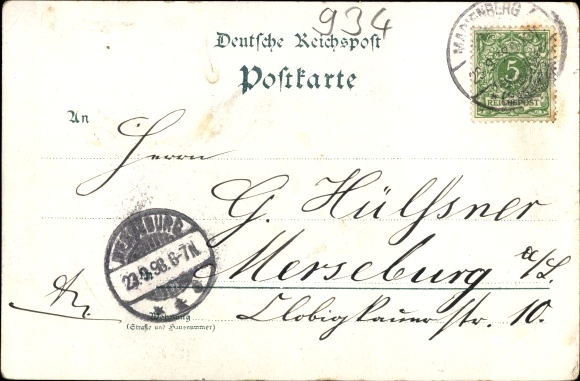 934
Deutsche Reichspost
Postkarte
MARIENBERG
5
REICHSPOST
An
Herrn
G. Hülssner
Merseburg a/S.
Clobigkauerstr. 10.
MERSEBURG
23.9.98.6-7N.
Wohnung
(Straße und Hausnummer)